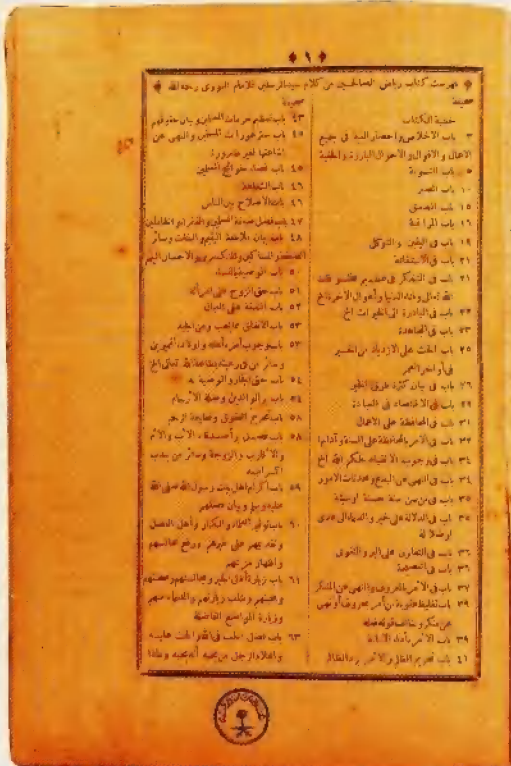 ﴿ ١ ﴾
﴿ فهرست كتاب رياض الصالحين من كلام سيد المرسلين للامام النووي رحمه الله ﴾
صحيفة
خطبة الكتاب
٣ باب الاخلاص واحضار النية في جميع
الاعمال والاقوال والاحوال البارزة والخفية
٥ باب التوبة
١٠ باب الصبر
١٥ باب الصدق
١٦ باب المراقبة
١٩ باب في اليقين والتوكل
٢١ باب في الاستقامة
٢١ باب في التفكر في عظيم مخلوقات
الله تعالى وفناء الدنيا وأهوال الآخرة الخ
٢٢ باب في المبادرة الى الخيرات الخ
٢٣ باب في المجاهدة
٢٥ باب الحث على الازدياد من الخير
في أواخر العمر
٢٦ باب في بيان كثرة طرق الخير
٢٩ باب في الاقتصاد في العبادة
٣١ باب في المحافظة على الاعمال
٣٢ باب في الأمر بالمحافظة على السنة وآدابها
٣٤ باب في وجوب الانقياد لحكم الله الخ
٣٤ باب في النهي عن البدع ومحدثات الامور
٣٥ باب في من سن سنة حسنة أوسيئة
٣٥ باب في الدلالة على خير والدعاء الى هدى
أوضلالة
٣٦ باب في التعاون على البر والتقوى
٣٦ باب في النصيحة
٣٧ باب في الأمر بالمعروف والنهي عن المنكر
٣٩ باب تغليظ عقوبة من أمر بمعروف أونهى
عن منكر وخالف قوله فعله
٣٩ باب الأمر بأداء الأمانة
٤١ باب تحريم الظلم والأمر برد المظالم
صحيفة
٤٣ باب تعظيم حرمات المسلمين وبيان حقوقهم
٤٥ باب ستر عورات المسلمين والنهي عن
اشاعتها لغير ضرورة
٤٥ باب قضاء حوائج المسلمين
٤٦ باب الشفاعة
٤٦ باب الاصلاح بين الناس
٤٧ باب فضل ضعفة المسلمين والفقراء والخاملين
٤٨ باب بيان ملاطفة اليتيم والبنات وسائر
الضعفة والمساكين والمنكسرين والاحسان اليهم
٥٠ باب الوصية بالنساء
٥١ باب حق الزوج على المرأة
٥٢ باب النفقة على العيال
٥٣ باب الانفاق مما يحب ومن الجيد
٥٣ باب وجوب أمره أهله وأولاده المميزين
وسائر من في رعيته بطاعة الله تعالى الخ
٥٤ باب حق الجار والوصية به
٥٥ باب بر الوالدين وصلة الأرحام
٥٨ باب تحريم العقوق وقطيعة الرحم
٥٨ باب فضل بر أصدقاء الأب والأم
والأقارب والزوجة وسائر من يندب
اكرامه
٥٩ باب اكرام اهل بيت رسول الله صلى الله
عليه وسلم وبيان فضلهم
٦٠ باب توقير العلماء والكبار وأهل الفضل
وتقديمهم على غيرهم ورفع مجالسهم
واظهار مرتبتهم
٦١ باب زيارة أهل الخير ومجالستهم وصحبتهم
ومحبتهم وطلب زيارتهم والدعاء منهم
وزيارة المواضع الفاضلة
٦٣ باب فضل الحب في الله والحث عليه
واعلام الرجل من يحبه أنه يحبه وماذا